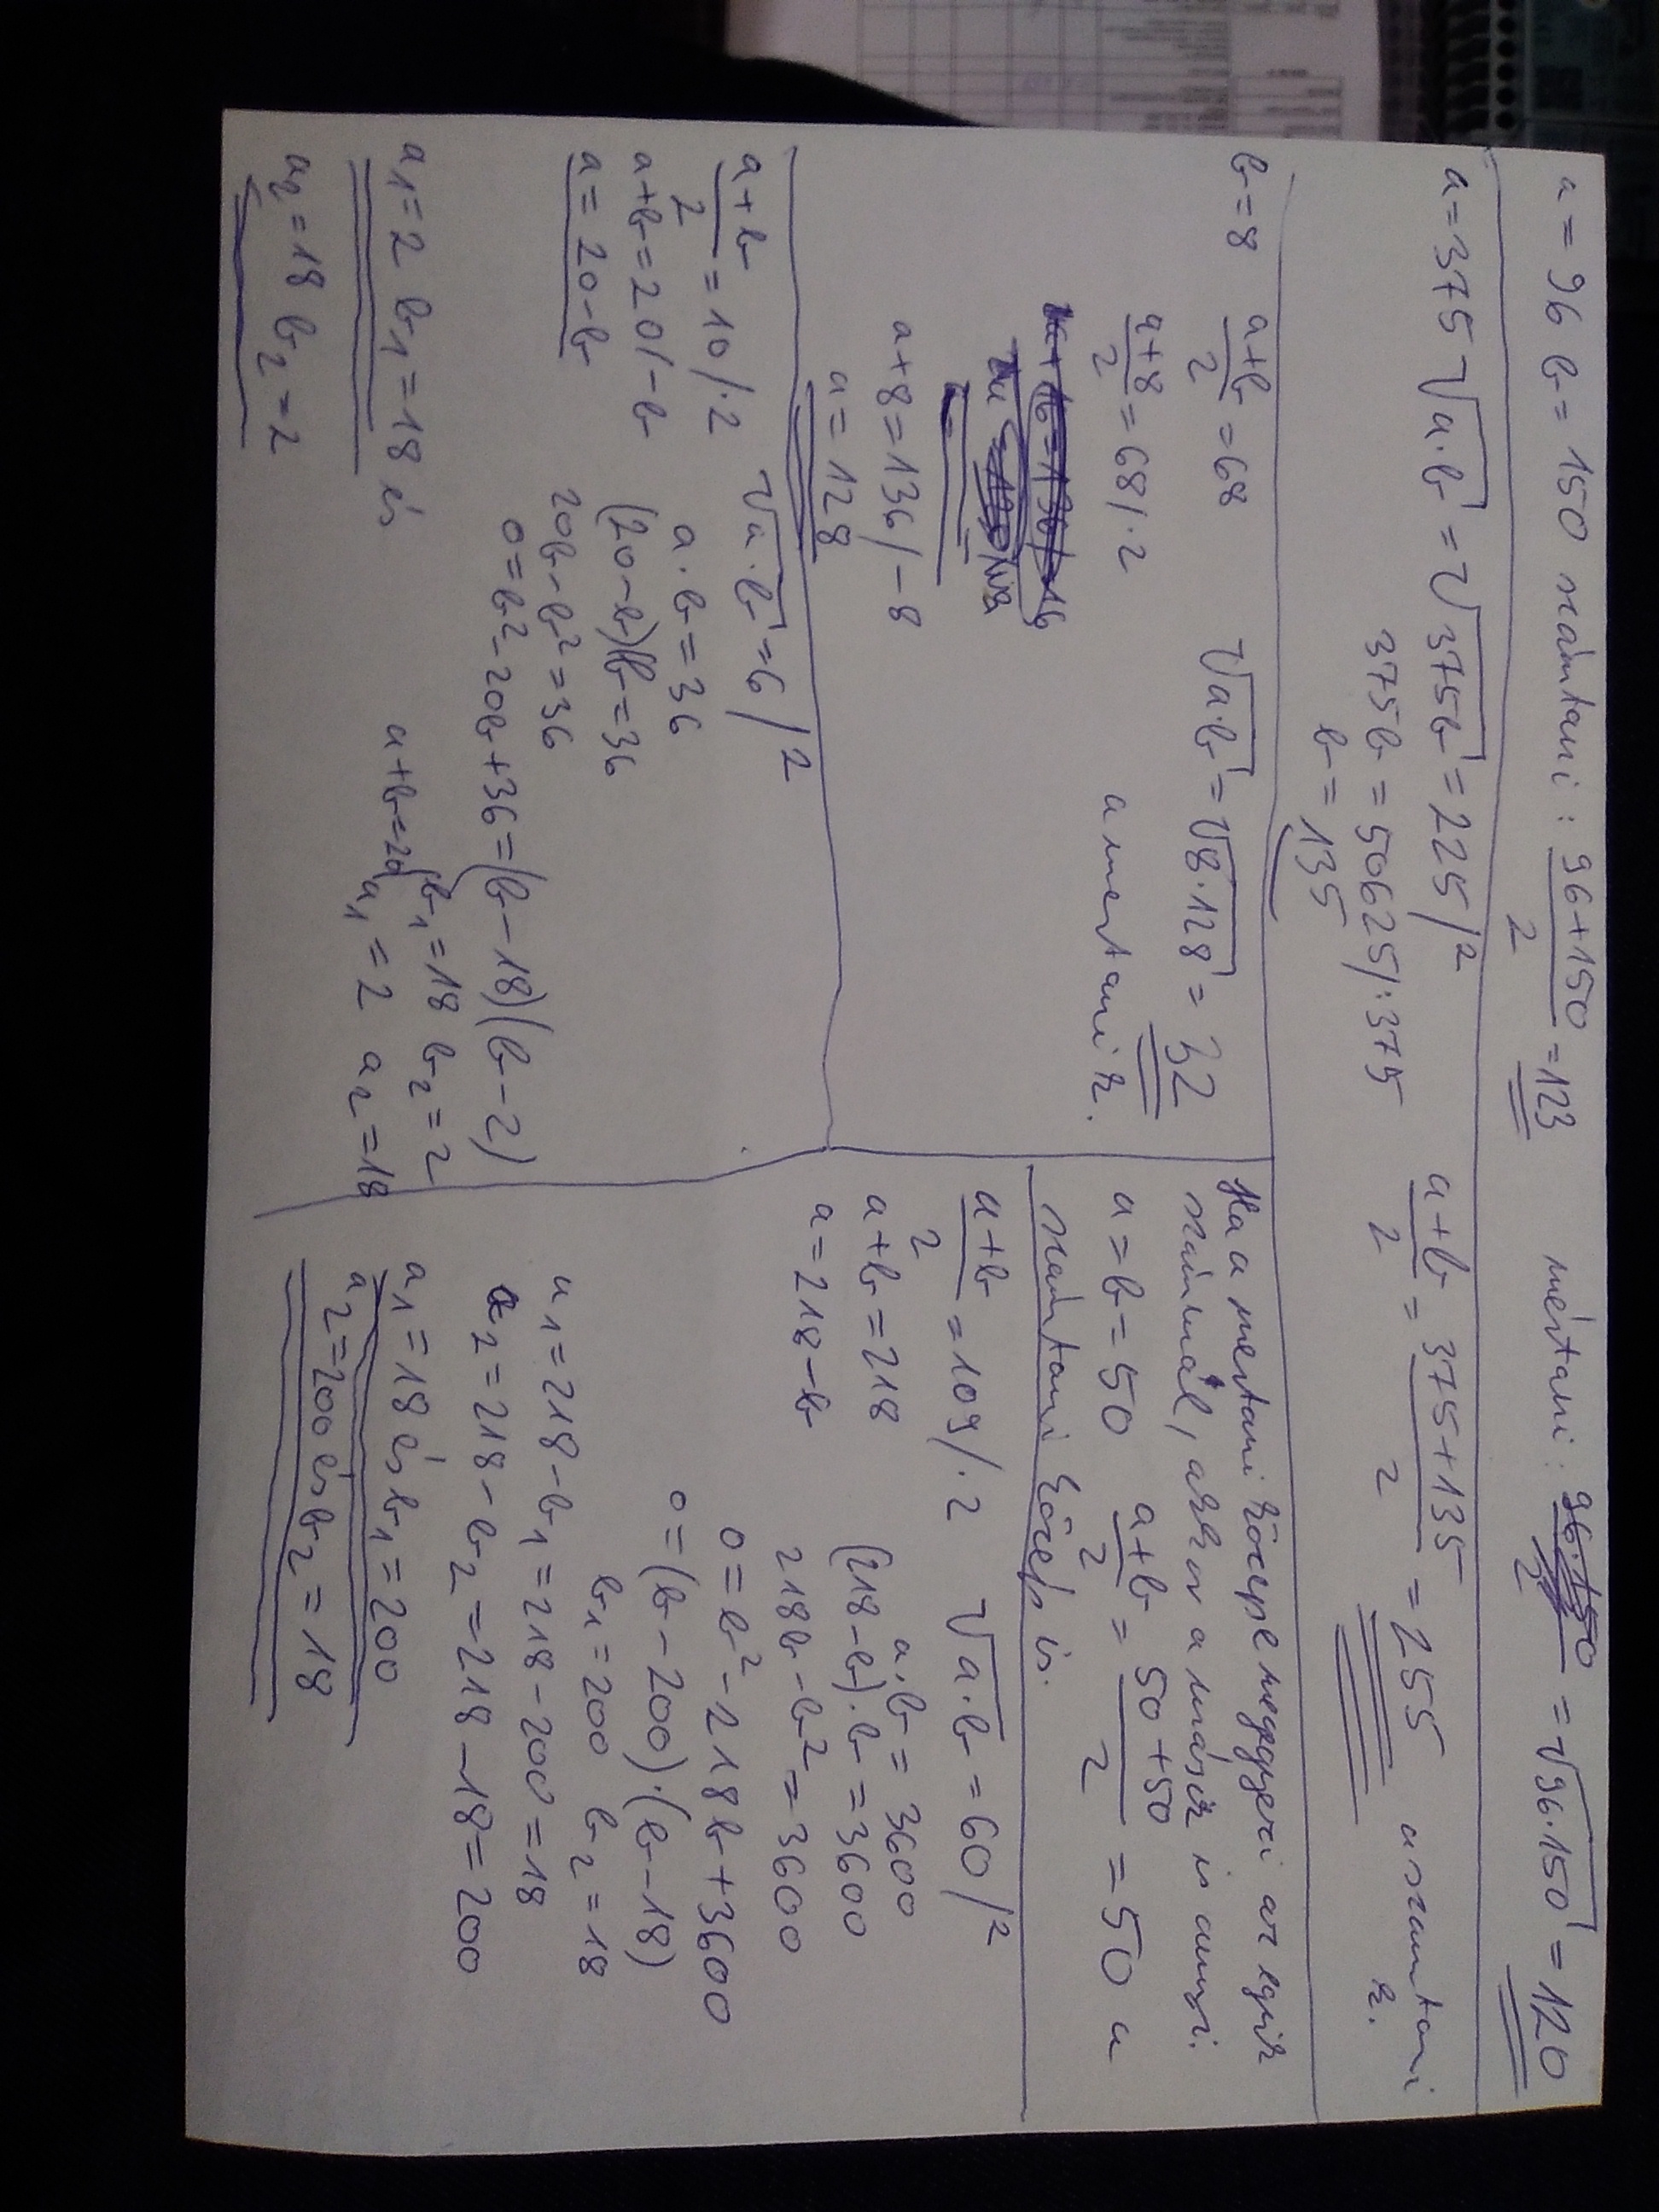 a = 96 b = 150 számtani : (96+150)/2 = 123 mértani : = √96·150 = 120
a = 375 √a·b = √375b = 225 /²
375b = 50625 /:375
b = 135
(a+b)/2 = (375+135)/2 = 255 a számtani k.
b = 8 (a+b)/2 = 68
(a+8)/2 = 68 /·2
a+8 = 136 /-8
a = 128
√a·b = √8·128 = 32
a mertani k.
Ha a mertani közepe megegyezi az egyik
számmal, akkor a másik is annyi.
a = b = 50 (a+b)/2 = (50+50)/2 = 50 a
számtani közép is.
(a+b)/2 = 10 /·2
a+b = 20 /-b
a = 20-b
√a·b = 6 /²
a·b = 36
(20-b)b = 36
20b-b² = 36
0 = b²-20b+36 = (b-18)(b-2)
b₁ = 18 b₂ = 2
a+b=20 a₁ = 2 a₂ = 18
a₁ = 2 b₁ = 18 és
a₂ = 18 b₂ = 2
(a+b)/2 = 109 /·2
a+b = 218
a = 218-b
√a·b = 60 /²
a·b = 3600
(218-b)·b = 3600
218b-b² = 3600
0 = b²-218b+3600
0 = (b-200)·(b-18)
b₁ = 200 b₂ = 18
a₁ = 218-b₁ = 218-200 = 18
a₂ = 218-b₂ = 218-18 = 200
a₁ = 18 és b₁ = 200
a₂ = 200 és b₂ = 18